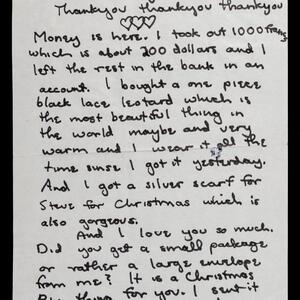 Thankyou thankyou thankyou
Money is here. I took out 1000 francs
which is about 200 dollars and I
left the rest in the bank in an
account. I bought a one piece
black lace leotard which is
the most beautiful thing in
the world maybe and very
warm and I wear it all the
time sinse I got it yesterday.
And I got a silver scarf for
Steve for Christmas which is
also gorgeous.
And I love you so much.
Did you get a small package
or rather a large envelope
from me? It is a Christmas
thing for you. I sent it